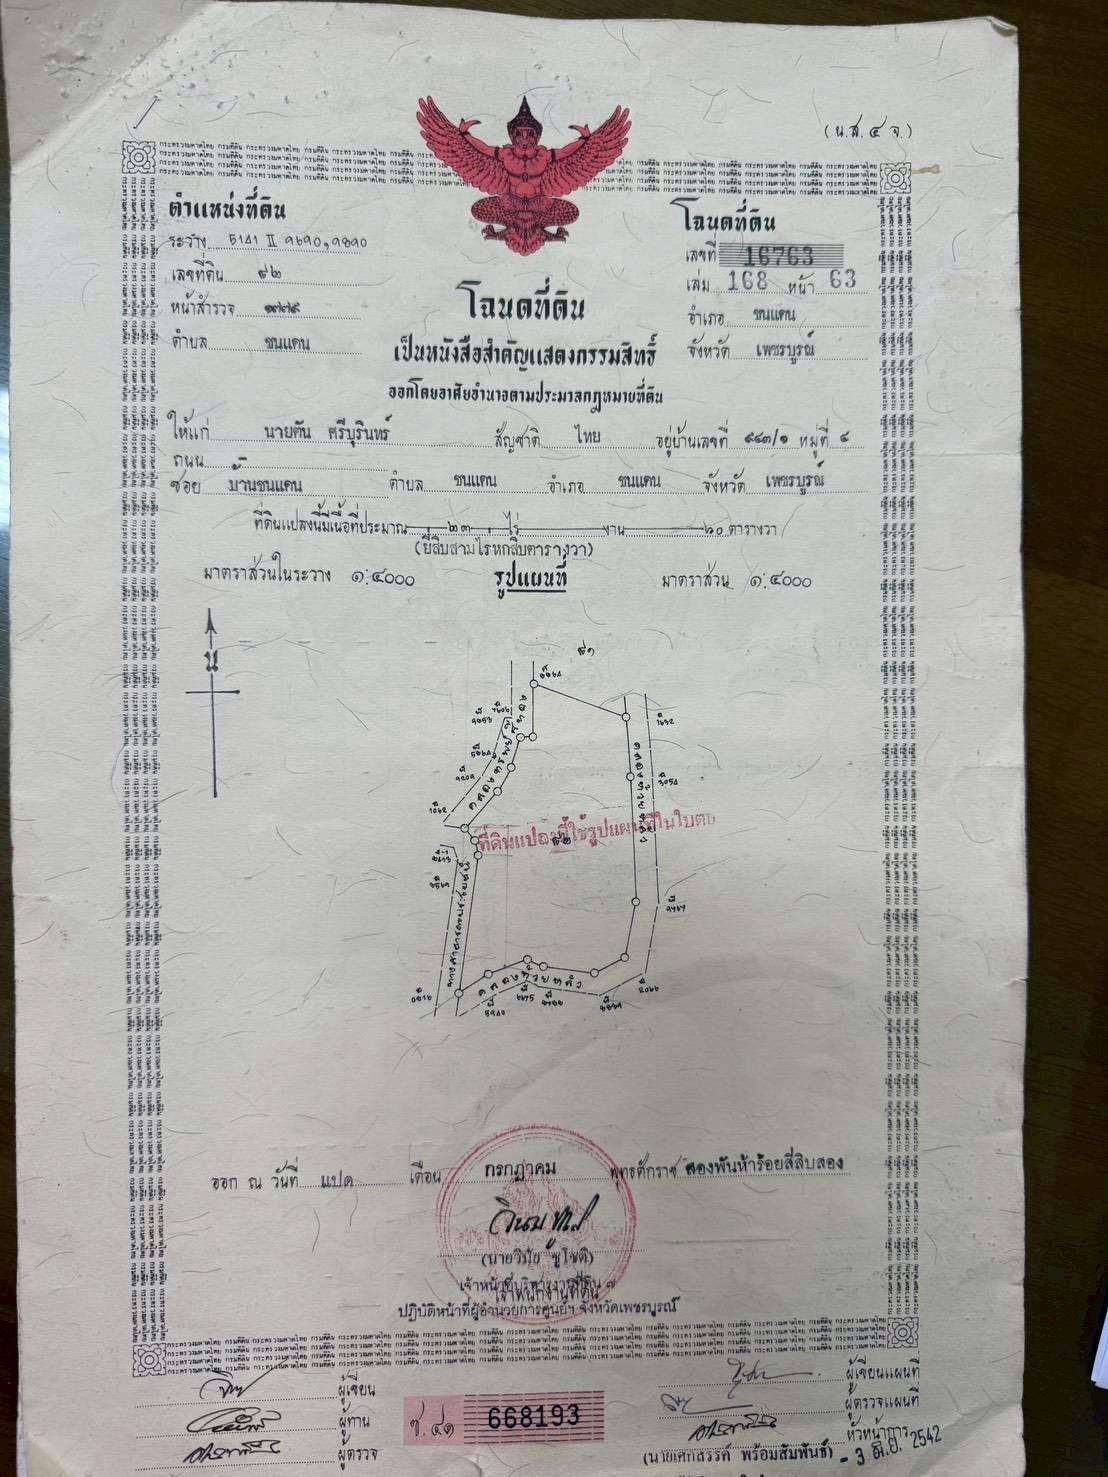 (น.ส. ๔ จ.)
ตำแหน่งที่ดิน
ระวาง 5141 II 9690, 9890
เลขที่ดิน ๙๒
หน้าสำรวจ ๑๗๗๕
ตำบล ชนแดน
โฉนดที่ดิน
เลขที่ 16763
เล่ม 168 หน้า 63
อำเภอ ชนแดน
จังหวัด เพชรบูรณ์
โฉนดที่ดิน
เป็นหนังสือสำคัญแสดงกรรมสิทธิ์
ออกโดยอาศัยอำนาจตามประมวลกฎหมายที่ดิน
ให้แก่ นายตัน ศรีบุรินทร์ สัญชาติ ไทย อยู่บ้านเลขที่ ๙๔๓/๑ หมู่ที่ ๔
ถนน -
ซอย บ้านชนแดน ตำบล ชนแดน อำเภอ ชนแดน จังหวัด เพชรบูรณ์
ที่ดินแปลงนี้มีเนื้อที่ประมาณ ๒๓ ไร่ งาน ๖๐ ตารางวา
(ยี่สิบสามไร่หกสิบตารางวา)
มาตราส่วนในระวาง ๑:๔๐๐๐ รูปแผนที่ มาตราส่วน ๑:๔๐๐๐
น
๙๑
คลองห้วยหลัว
ที่ดินแปลงนี้ใช้รูปแผนที่ในใบต่อ
๙๒
ทางสาธารณประโยชน์
คลองห้วยหลัว
ออก ณ วันที่ แปด เดือน กรกฎาคม พุทธศักราช สองพันห้าร้อยสี่สิบสอง
(นายวินัย ชูโชติ)
เจ้าหน้าที่บริหารงานที่ดิน ๗
เจ้าพนักงานที่ดิน
ปฏิบัติหน้าที่ผู้อำนวยการศูนย์ฯ จังหวัดเพชรบูรณ์
ผู้เขียน
ผู้ทาน
ผู้ตรวจ
ช.๔๑ 668193
ผู้เขียนแผนที่
ผู้ตรวจแผนที่
หัวหน้าการ
(นายเศกสรรค์ พร้อมสัมพันธ์) - 3 มิ.ย. 2542